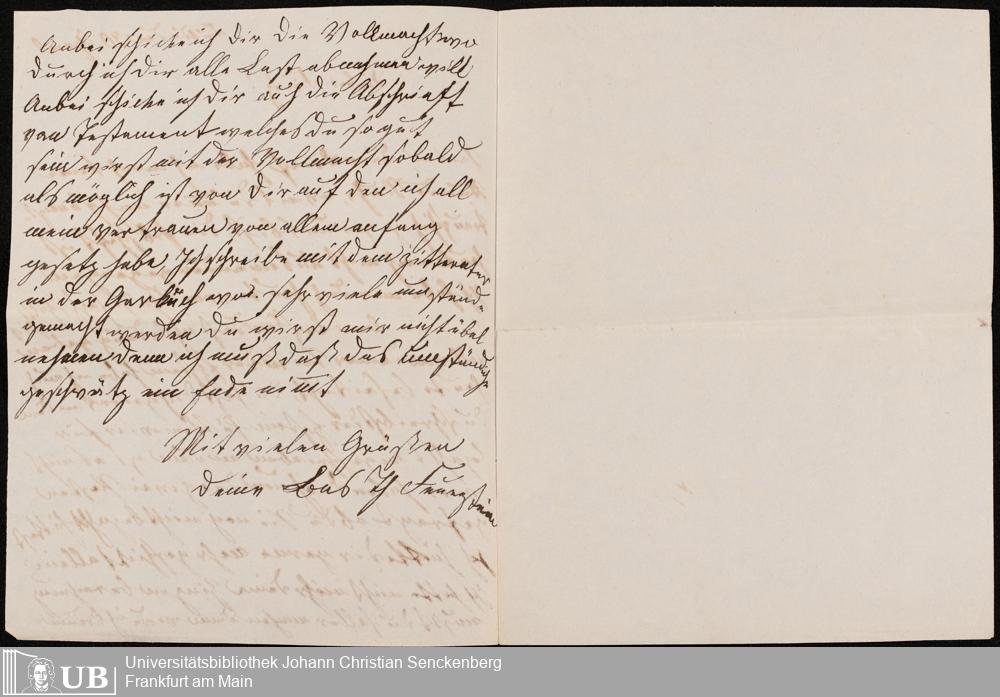 Anbei schicke ich dir die Vollmacht wo
durch ich dir alle Last abnehmen will
Anbei schicke ich dir auch die Abschrieft
von Testament welches du so gut
sein wirst mit der Vollmacht sobald
als möglich ist von dir auf den ich all
mein vertrauen von allem anfang
gesetz habe, Ich schreibe mit dem
in der wo. sehr viele umstände
gemacht werden du wirst mir nicht übel
nehmen denn ich muß daß das umständige
geschwätz ein Ende nimt
Mit vielen Grüßen
deine Bas Th Feuerstein
UB
Universitätsbibliothek Johann Christian Senckenberg
Frankfurt am Main